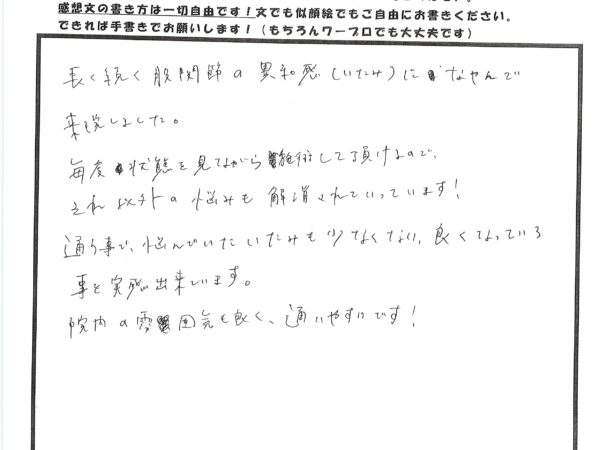 感想文の書き方は一切自由です!文でも似顔絵でもご自由にお書きください。
できれば手書きでお願いします!(もちろんワープロでも大丈夫です)
長く続く股関節の異和感(いたみ)になやんで
来院しました。
毎度状態を見てながら施術して頂けるので、
それ以外の悩みも解消されていっています!
通う事で、悩んでいたいたみも少なくない、良くなっている
事を実感出来ています。
院内の雰囲気も良く、通いやすいです!